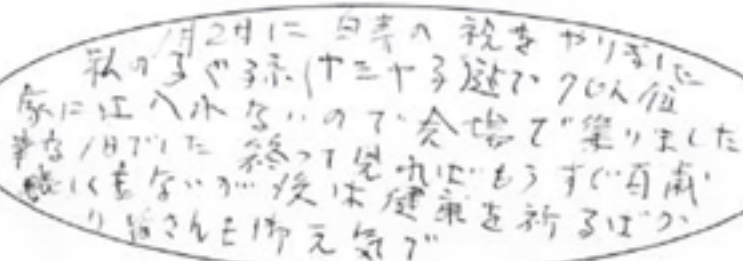 1月2日に白寿の祝をやりました
私の子ぐ孫(ヤシヤ子)迄で70人位
家には入れないので会場で集りました
な1日でした 終って見ればもうすぐ百歳
しくないが後は健康を祈るばか
り皆さんも御元気で